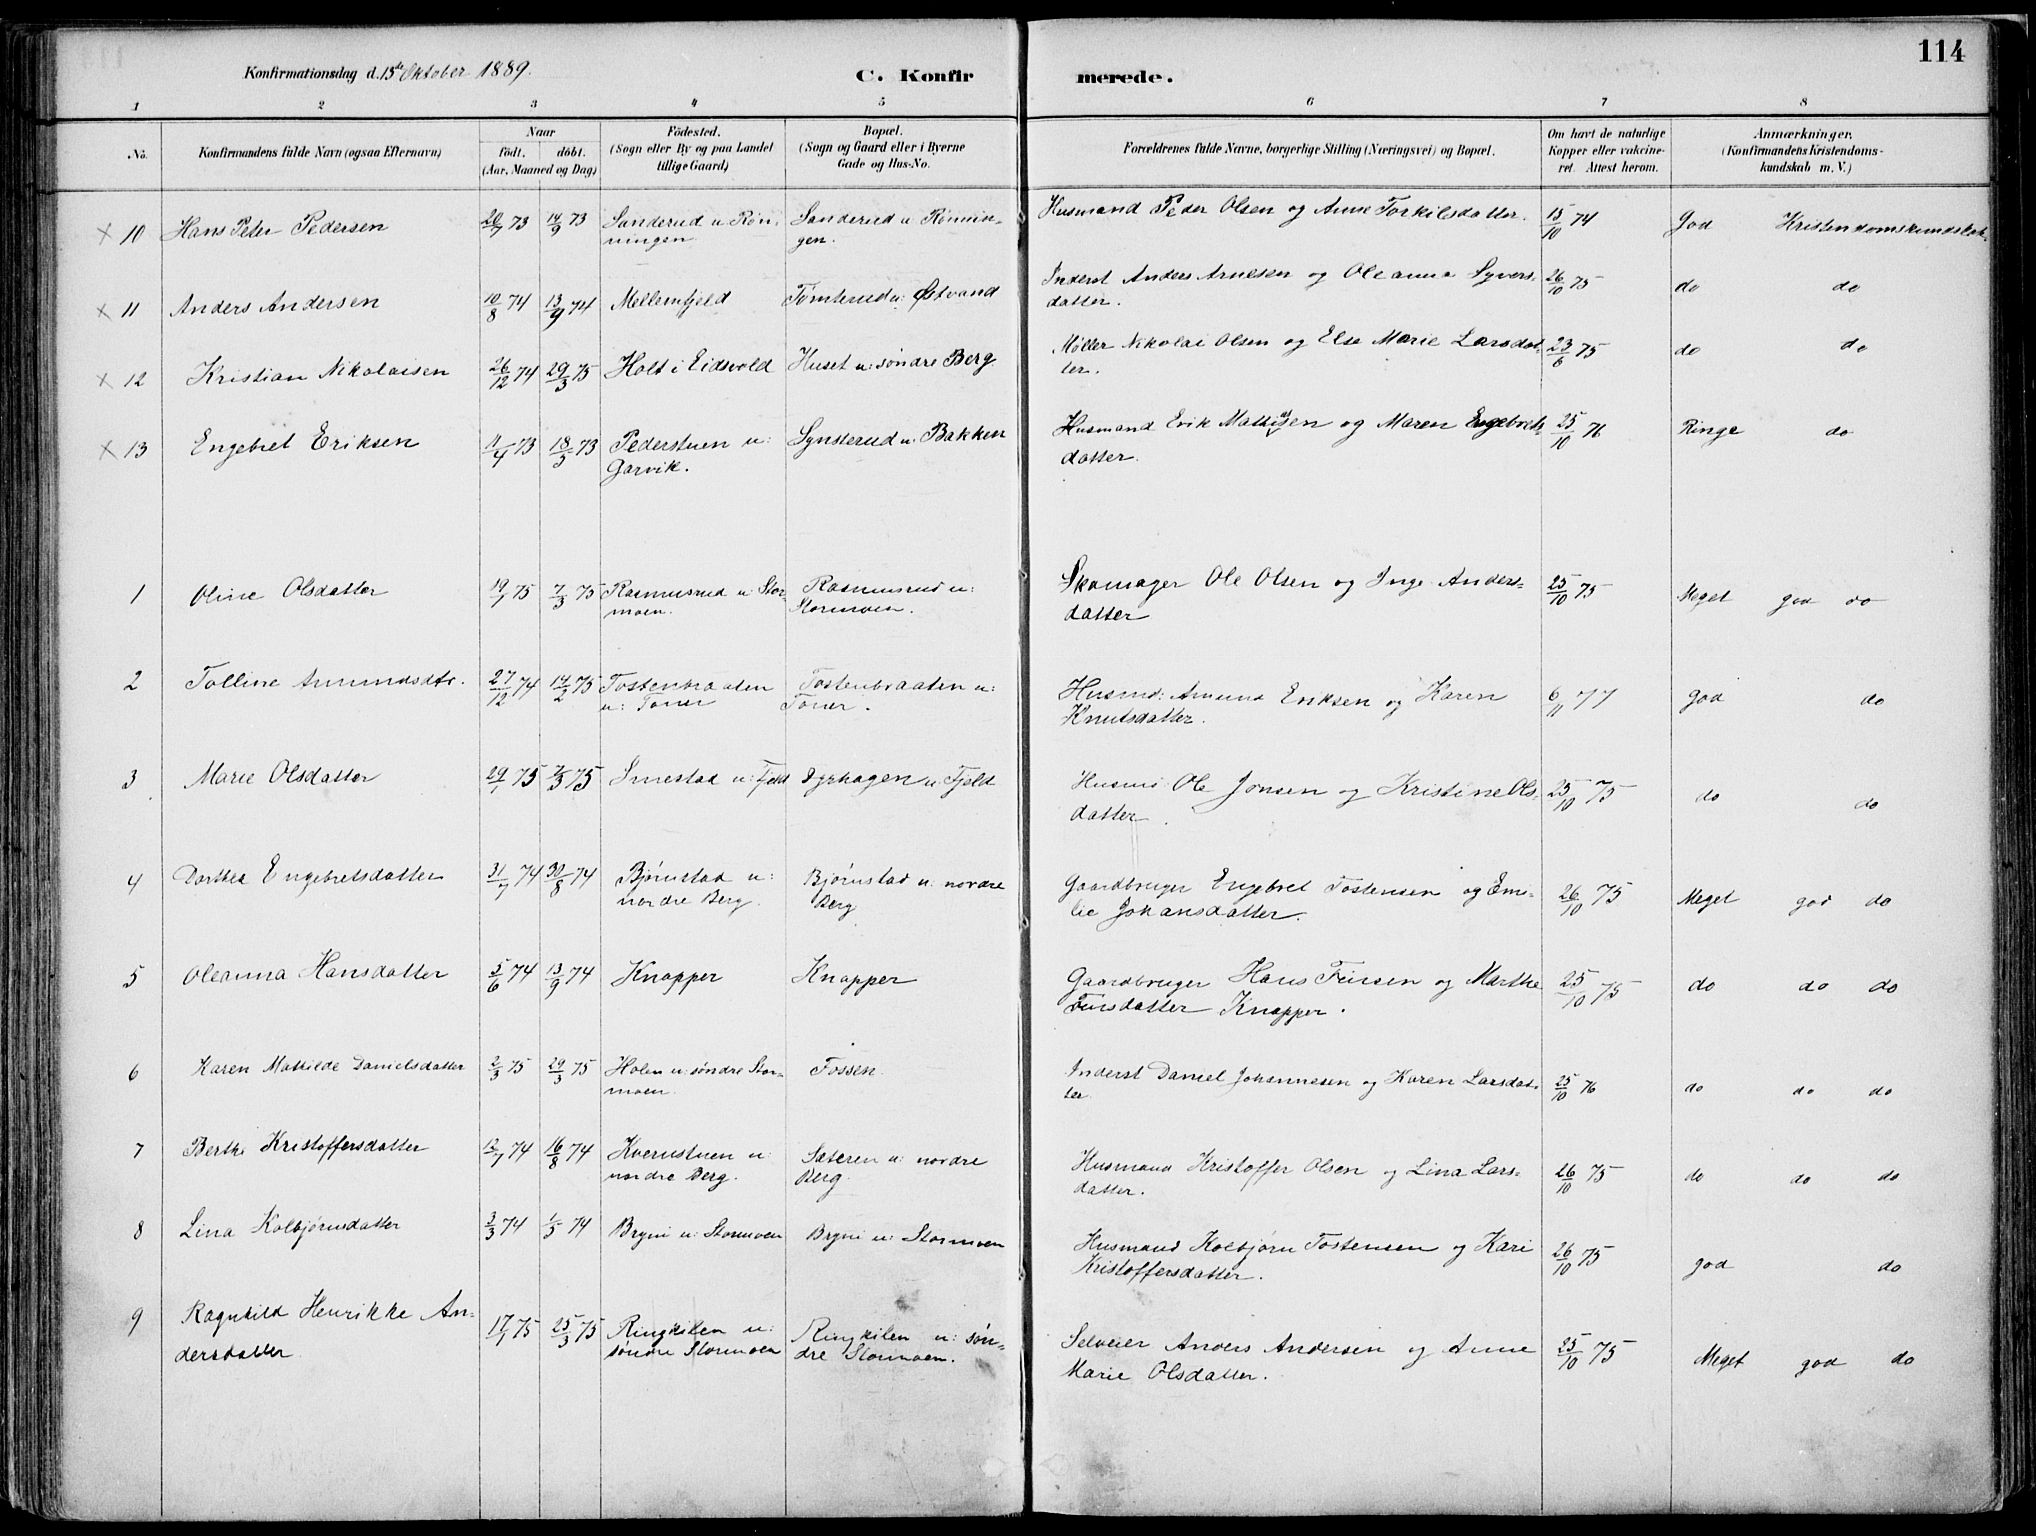 114
Konfirmationsdag d. 15de Oktober 1889.
C. Konfirmerede.
1 2 3 4 5 6 7 8
No.
Konfirmandens fulde Navn (ogsaa Efternavn)
Naar
født. døbt.
(Aar, Maaned og Dag)
Fødested.
(Sogn eller By og paa Landet
tillige Gaard)
Bopæl.
(Sogn og Gaard eller i Byerne
Gade og Hus-No.
Forældrenes fulde Navne, borgerlige Stilling (Næringsvei) og Bopæl.
Om havt de naturlige
Kopper eller vakcine-
ret. Attest herom.
Anmærkninger.
(Konfirmandens Kristendoms-
kundskab m. V.)
x 10 Hans Peter Pedersen 20/7 73 14/9 73 Sanderud u. Røn- Sanderud u. Rønnin- Husmand Peder Olsen og Anne Torkildsdatter. 15/10 74 God Kristendomskundskab
ningen. gen.
x 11 Anders Andersen 10/8 74 13/9 74 Mellemfjeld Tomterud u: Østvand Inderst Anders Arnesen og Oleanna Syvers- 26/10 75 do do
datter.
x 12 Kristian Nikolaisen 26/12 74 29/3 75 Holt i Eidsvold Huset u: søndre Berg Møller Nikolai Olsen og Else Marie Larsdat- 23/6 75 do do
ter.
x 13 Engebret Eriksen 11/4 73 18/5 73 Pederstuen u: Synsterud u. Bakken Husmand Erik Mathisen og Maren Engebrets- 25/10 76 Ringe do
Garvik. datter.
1 Oline Olsdatter 19/1 75 7/3 75 Rasmusrud u: Stor- Rasmusrud u: Skomager Ole Olsen og Inge Anders- 25/10 75 Meget god do
moen. Stormoen. datter
2 Tolline Amundsdtr. 27/12 74 14/2 75 Tostenbraaten Tostenbraaten u: Husmd: Amund Eriksen og Karen 6/11 77 god do
u: Toner Toner. Knutsdatter.
3 Marie Olsdatter 29/1 75 7/3 75 Smestad u: Fjeld Dyrhagen u: Fjeld Husmd Ole Jonsen og Kristine Ols- 25/10 75 do do
datter
4 Dorthea Engebretsdatter 31/7 74 30/8 74 Bjørnstad u: Bjørnstad u: nordre Gaardbruger Engebret Tostensen og Em- 26/10 75 Meget god do
nordre Berg. Berg lie Johansdatter.
5 Oleanna Hansdatter 5/6 74 13/9 74 Knapper Knapper Gaardbruger Hans Finsen og Marthe 25/10 75 do do do
Finsdatter Knapper.
6 Karen Mathilde Danielsdatter 2/3 75 29/3 75 Holen u: søndre Stor- Fossen. Inderst Daniel Johannesen og Karen Larsdat- 25/10 76 do do do
moen. ter.
7 Berthe Kristoffersdatter 12/7 74 16/8 74 Kvernstuen u: Sæteren u: nordre Husmand Kristoffer Olsen og Lina Lars- 26/10 75 do do do
nordre Berg. Berg. datter.
8 Lina Kolbjørnsdatter 3/3 74 1/5 74 Bryni u: Stormoen Bryni u: Stormoen Husmand Kolbjørn Tostensen og Kari 26/10 75 god do
Kristoffersdatter.
9 Ragnhild Henrikke An- 17/1 75 25/3 75 Ringkilen u: Ringkilen u: søn- Selveier Anders Andersen og Anne 25/10 75 Meget god do
dersdatter søndre Stormoen dre Stormoen. Marie Olsdatter.